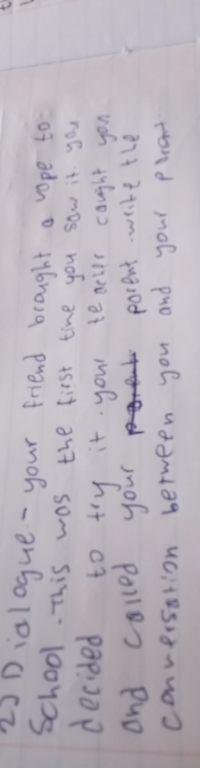 2) Dialogue - your friend brought a vape to
school. This was the first time you saw it you
decided to try it. your teacher caught you
and called your parent. write the
conversation between you and your parent.